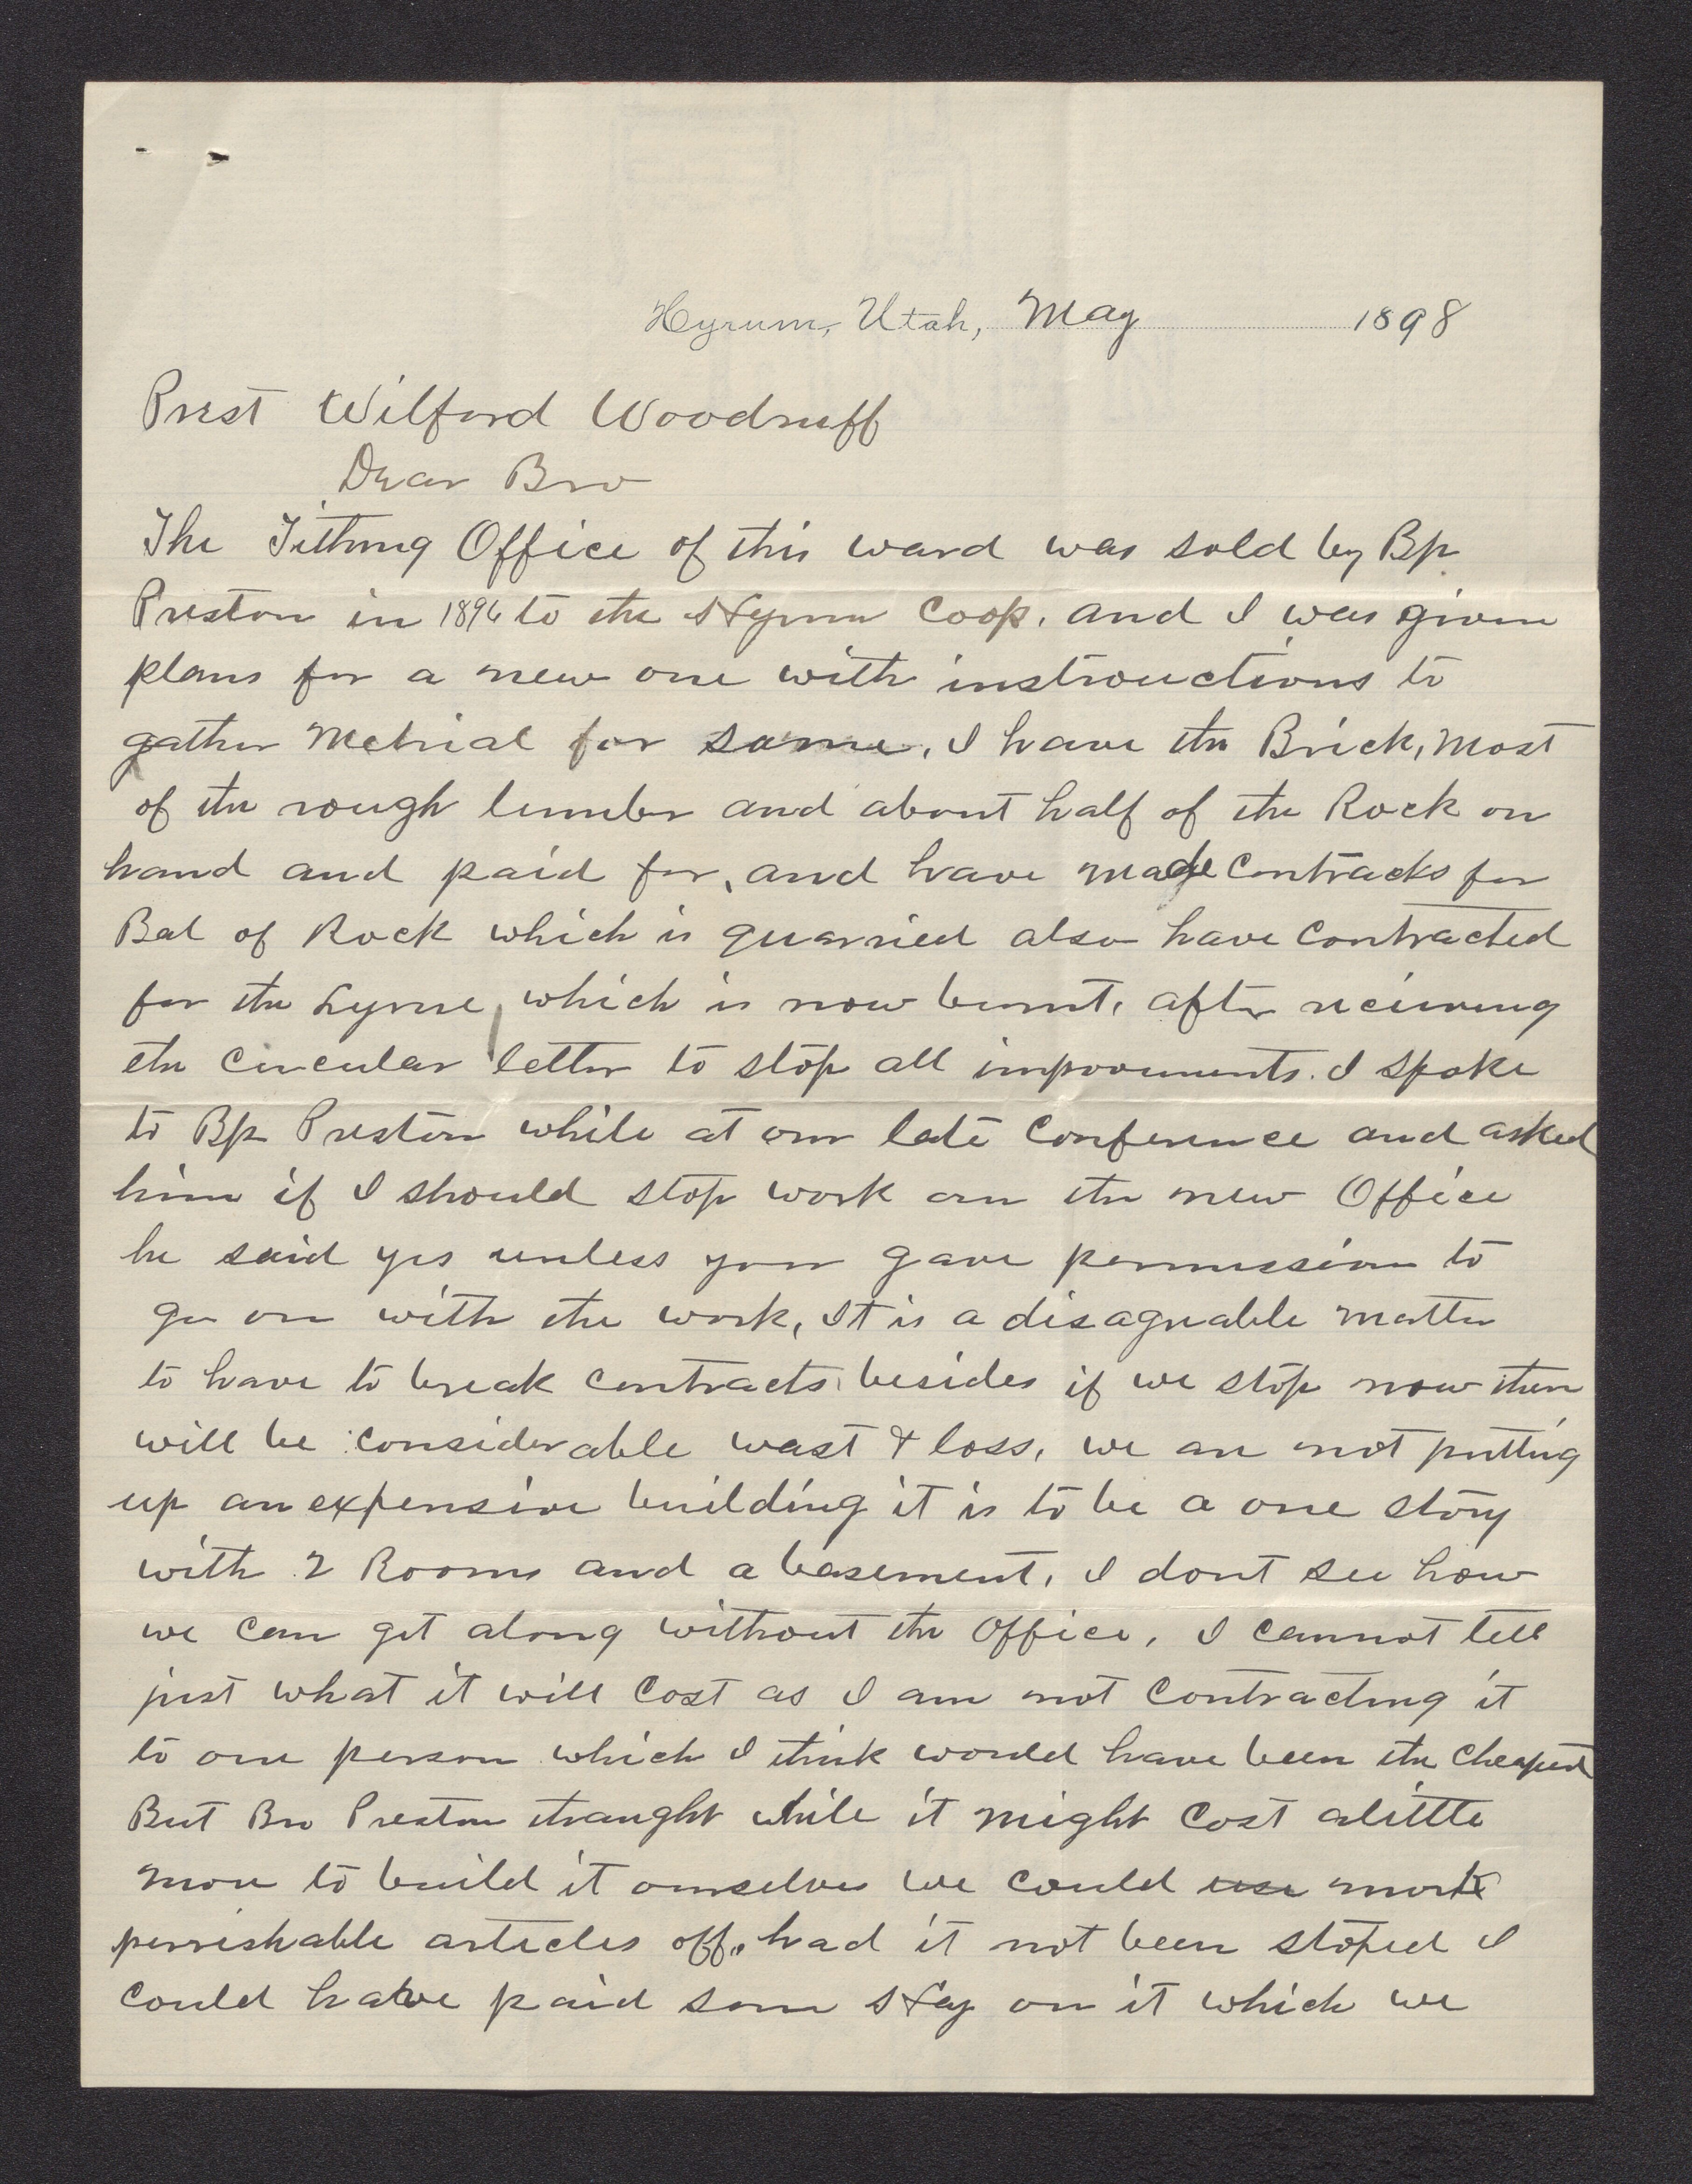 Hyrum, Utah, May 1898
Prest Wilford Woodruff
Dear Bro
The Tithing Office of this ward was sold by Bp
Preston in 1896 to the Hyrum Coop. and I was given
plans for a new one with instructions to
gather Metrial for same, I have the Brick, Most
of the rough lumber and about half of the Rock on
hand and paid for, and have made Contracks for
Bal of Rock which is quarried also have Contracted
for the Lyme, which is now burnt, after recieving
the Circular letter to stop all improvments. I spoke
to Bp Preston while at our late Conference and asked
him if I should stop work on the new Office
he said yes unless you gave permission to
go on with the work, It is a disagreable matter
to have to break Contracts besides if we stop now ther
will be Considerable wast & loss, we are not putting
up an expensive building it is to be a one story
with 2 Rooms and a basement, I dont see how
we can get along without the Office, I cannot tell
just what it will Cost as I am not Contracting it
to one person which I think would have been the Cheapest
But Bro Preston thaught while it might Cost alittle
more to build it ourselves we could use work
perrishable articles off, had it not been stoped I
Could have paid some Hay on it which we